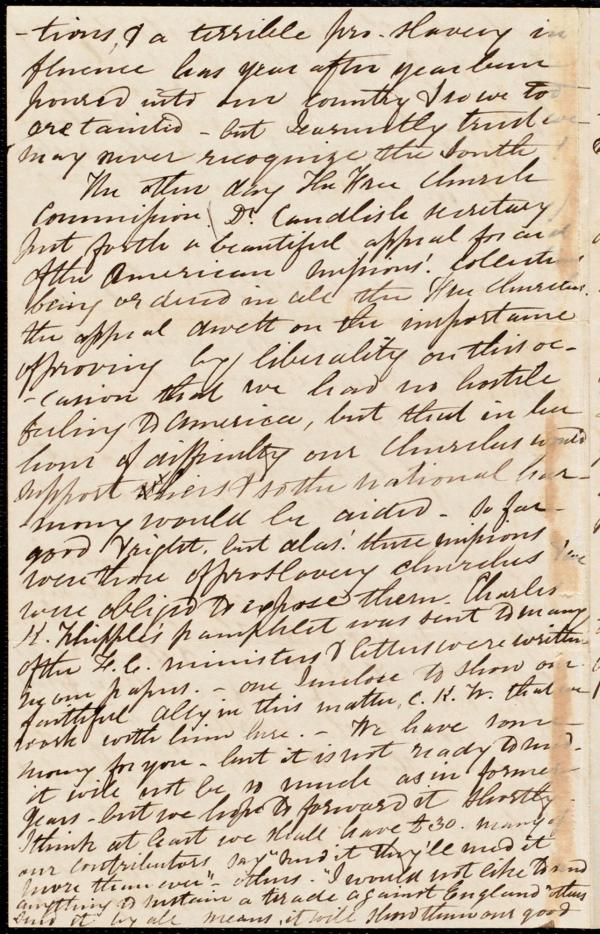 -tions, & a terrible pro-slavery in
fluence has year after year been
poured into our country & so we too
are tainted - but I earnestly trust we
may never recognize the South!
The other day The Free Church
Commission (Dr. Candlish secretary)
put forth a beautiful appeal for aid
of the American Missions! Collections
being ordered in all the Free Churches.
the appeal dwelt on the importance
of proving by liberality on this oc-
-casion that we had no hostile
feeling to America, but that in her
hour of difficulty our Churches would
support theirs & so the national har-
-mony would be aided - So far
good & right, but alas! these missions
were those of proslavery churches & we
were obliged to expose them. Charles
K. Whipple's pamphlet was sent to many
of the F. C. ministers & letters were written
in our papers. - one I enclose to show our
faithful Ally in this matter, C. K. W. that we
work with him here. - We have some
money for you - but it is not ready to send -
it will not be so much as in former
years - but we hope to forward it shortly -
I think at least we shall have £30. many of
our contributors say "Send it they'll need it
more than ever" - others - "I would not like to send
anything to sustain a tirade against England" others
send it by all means, it will show them our good